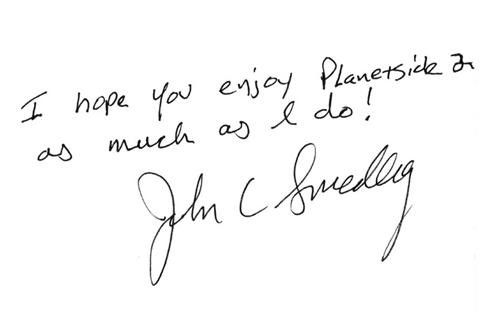 I hope you enjoy Planetside 2
as much as I do!
John C Smedley